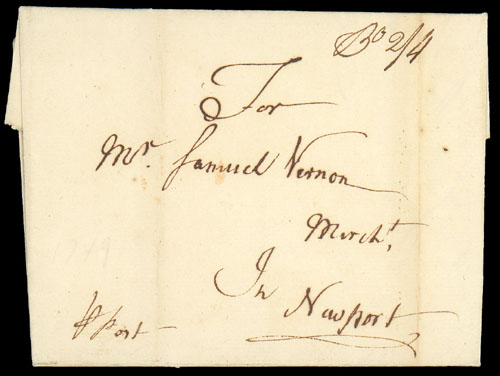 Bo 2/4
For
Mr. Samuel Vernon
Mercht,
In
Newport
⅌ Post